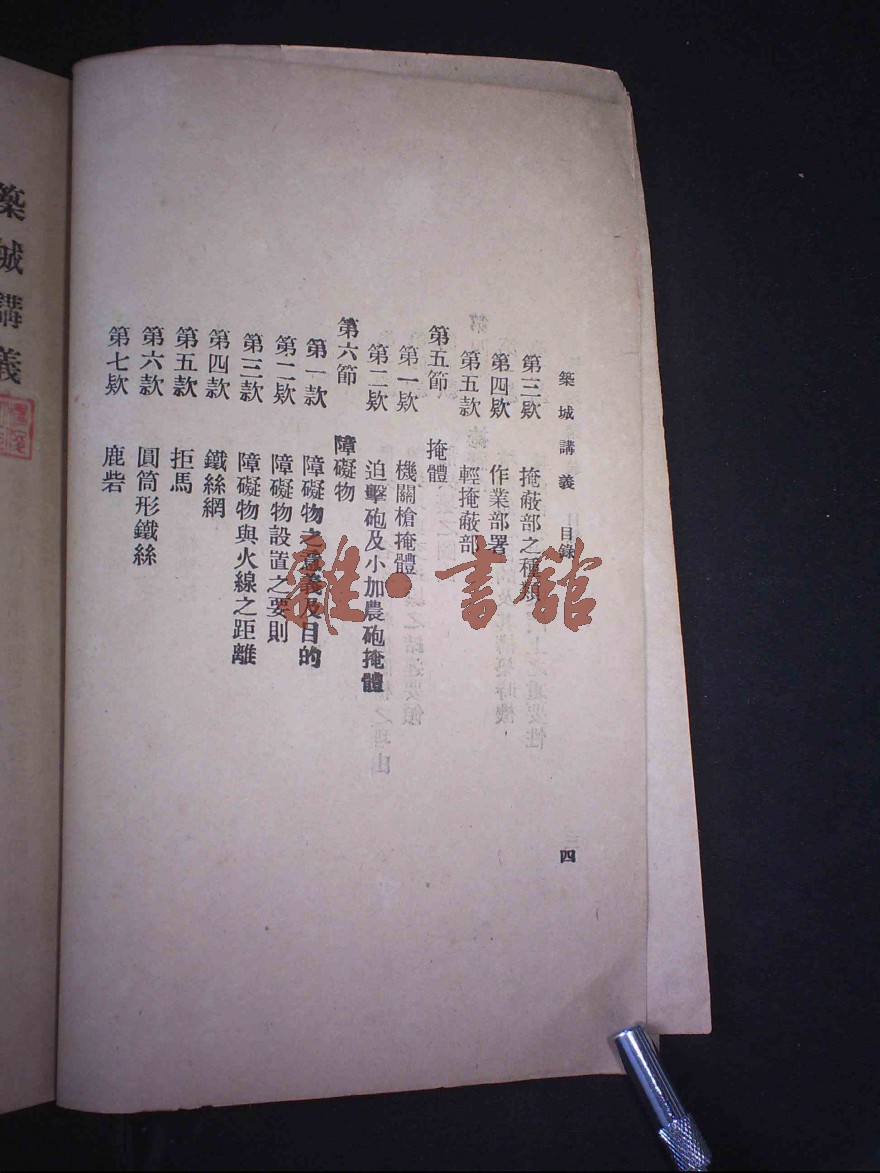 築城講義 目錄
第三欵 掩蔽部之種類
第四欵 作業部署
第五款 輕掩蔽部
第五節 掩體
第一欵 機關槍掩體
第二欵 迫擊砲及小加農砲掩體
第六節 障礙物
第一款 障礙物之意義及目的
第二欵 障礙物設置之要則
第三款 障礙物與火線之距離
第四款 鐵絲網
第五款 拒馬
第六款 圓筒形鐵絲
第七欵 鹿砦
四
築城講義
雜·書館